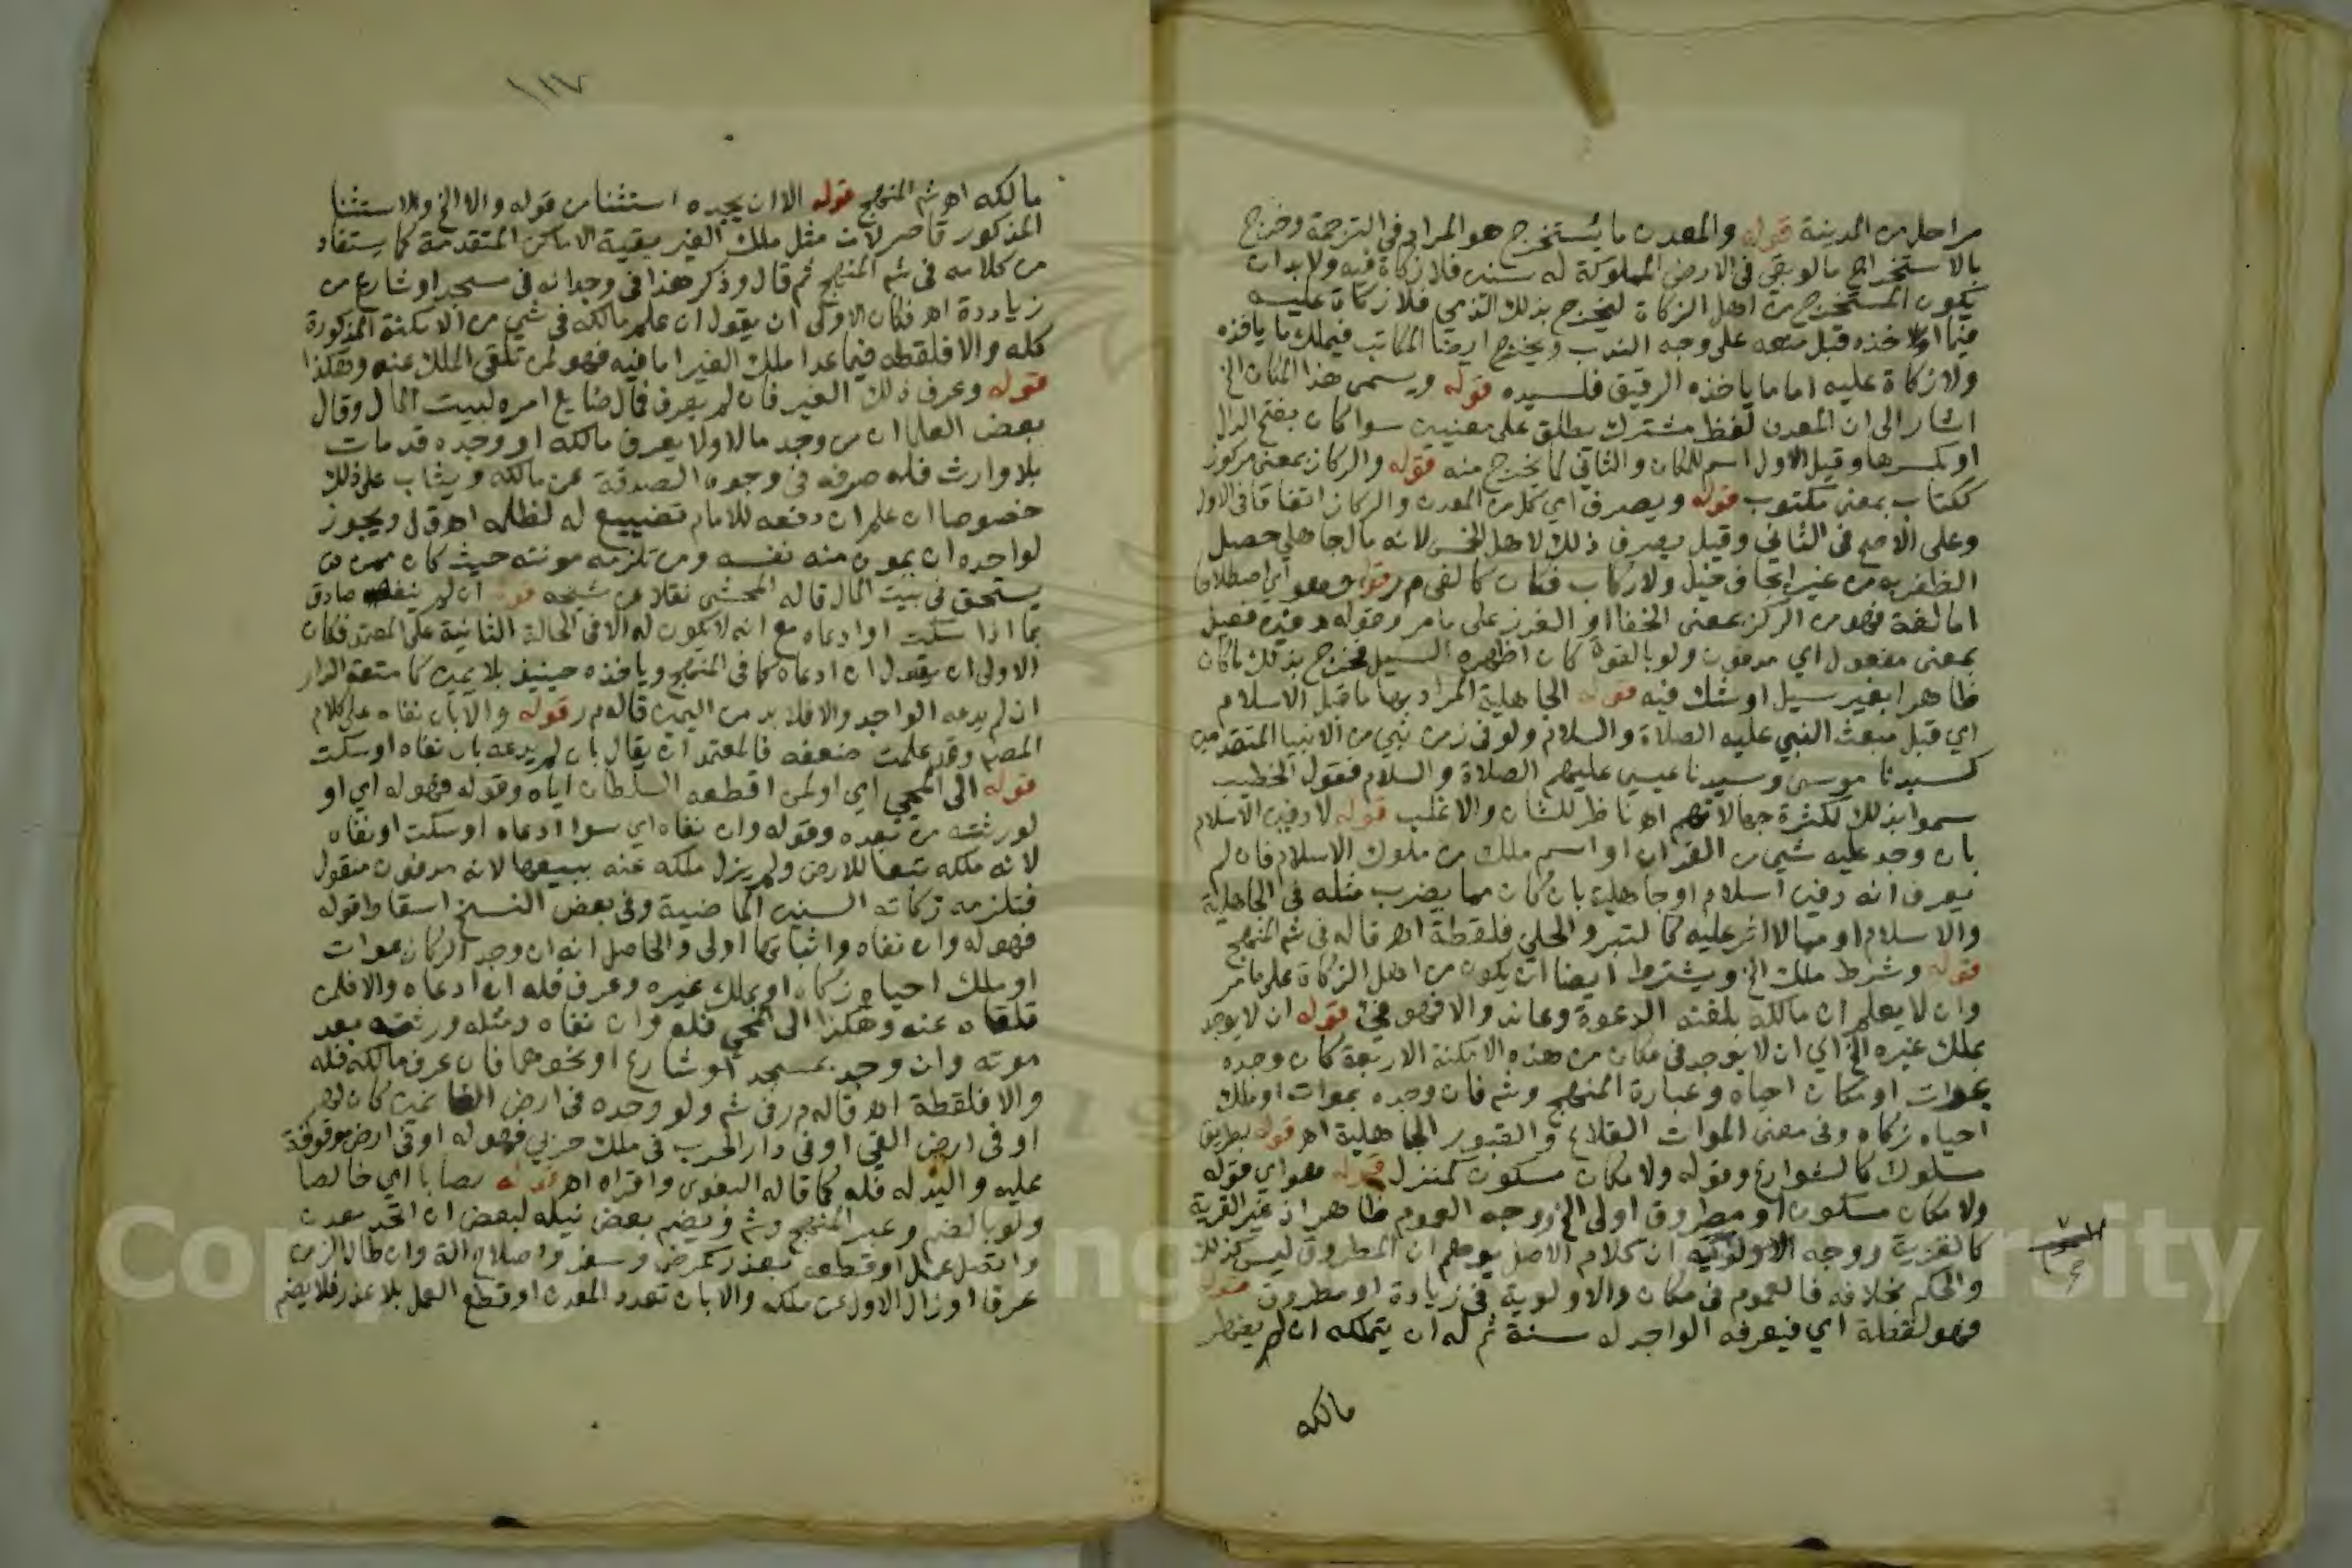 مراحل من المدينة قوله والمعدن ما يستخرج هو المراد في الترجمة وخرج
بالاستخراج ما لو بقي في الارض المملوكة له سنين فلا زكاة فيه ولا بد ان
يكون المستخرج من اهل الزكاة ليخرج بذلك الذمي فلا زكاة عليه
فيما اخذه قبل منعه على وجه الندب ويخرج ايضا المكاتب فيملك ما ياخذه
ولا زكاة عليه اما ما ياخذه الرقيق فلسيده قوله ويسمى هذا المكان الخ
اشار الى ان المعدن لفظ مشترك يطلق على معنيين سوا كان بفتح الدال
او بكسرها وقيل الاول اسم للمكان والثاني لما يخرج منه قوله والركاز بمعنى مركوز
ككتاب بمعنى مكتوب قوله ويصرف اي كل من المعدن والركاز اتفاقا في الاول
وعلى الاصح في الثاني وقيل يصرف ذلك لاهل الخمس لانه مال جاهلي حصل
الظفر به من غير ايجاف خيل ولا ركاب فكان كالفي م ر قوله وهو اي اصطلاحا
اما لغة فهو من الركز بمعنى الخفا او الغرز على ما مر وقوله دفين فعيل
بمعنى مفعول اي مدفون ولو بالقوة كان اظهره السيل فخرج بذلك ما كان
ظاهرا بغير سيل او شك فيه قوله الجاهلية المراد بها ما قبل الاسلام
اي قبل مبعث النبي عليه الصلاة والسلام ولو في زمن نبي من الانبيا المتقدمين
كسيدنا موسى وسيدنا عيسى عليهم الصلاة والسلام فقول الخطيب
سموا بذلك لكثرة جهالاتهم اه ناظر للشان والاغلب قوله لا دفين الاسلام
بان وجد عليه شي من القران او اسم ملك من ملوك الاسلام فان لم
يعرف انه دفين اسلام او جاهلية بان كان مما يضرب مثله في الجاهلية
والاسلام او مما لا اثر عليه كالتبر والحلي فلقطة اه قاله في شم المنهج
قوله وشرط ملك الخ ويشترط ايضا ان يكون من اهل الزكاة على ما مر
وان لا يعلم ان مالكه بلغته الدعوة وعاند والا فهو في قوله ان لا يوجد
بملك غيره الخ اي ان لا يوجد في مكان من هذه الامكنة الاربعة كان وجده
بموات او مكان احياه وعبارة المنهج وشم فان وجده بموات او ملك
احياه زكاه وفي معنى الموات القلاع والقبور الجاهلية اه قوله بطريق
سلوك كالشوارع وقوله ولا مكان مسكون كمنزل قوله هو اي قوله
ولا مكان مسكون او مطروق اولى الخ ووجه العموم ظاهر اذ غير القرية
كالقرية ووجه الاولوية ان كلام الاصل يوهم ان المطروق ليس كذلك
والحكم بخلافه فالعموم في مكان والاولوية في زيادة او مطروق قوله
فهو لقطة اي فيعرفه الواجد له سنة ثم له ان يتملكه ان لم يظهر
مالكه
١١٧
مالكه اه شم المنهج قوله الا ان يجده استثنا من قوله والا الخ والاستثنا
المذكور قاصر لان مثل ملك الغير بقية الاماكن المتقدمة كما يستفاد
من كلامه في شم المنهج ثم قال وذكر هذا في وجدانه في مسجد او شارع من
زيادة اه فكان الاولى ان يقول ان علم مالكه في شي من الامكنة المذكورة
فله والا فلقطه فيما عدا ملك الغير اما فيه فهو لمن تلقى الملك عنه وهكذا
قوله وعرف ذلك الغير فان لم يعرف فمال ضايع امره لبيت المال وقال
بعض العلما ان من وجد مالا ولا يعرف مالكه او وجده قد مات
بلا وارث فله صرفه في وجوه الصدقة عن مالكه ويثاب على ذلك
خصوصا ان علم ان دفعه للامام تضييع له لظلمه اه ق ل ويجوز
لواجده ان يمون منه نفسه ومن تلزمه مونته حيث كان ممن
يستحق في بيت المال قاله المحشي نقلا عن شيخه قوله ان لم ينفه صادق
بما اذا سكت او ادعاه مع انه لا يكون له الا في الحالة الثانية على المعتمد فكان
الاولى ان يقول ان ادعاه كما في المنهج وياخذه حينيذ بلا يمين كامتعة الدار
ان لم يدعه الواجد والا فلا بد من اليمين قاله م ر قوله والا بان نفاه على كلام
المصم وقد علمت ضعفه فالمعتمد ان يقال بان لم يدعه بان نفاه او سكت
قوله الى المحيي اي او لمن اقطعه السلطان اياه وقوله فهو له اي او
لورثته من بعده وقوله وان نفاه اي سوا ادعاه او سكت او نفاه
لانه ملكه تبعا للارض ولم يزل ملكه عنه ببيعها لانه مدفون منقول
فتلزمه زكاته السنين الماضية وفي بعض النسخ اسقاط قوله
فهو له وان نفاه واثباتها اولى والحاصل انه ان وجد الركاز بموات
او ملك احياه زكاه او بملك غيره وعرف فله ان ادعاه والا فلمن
تلقاه عنه وهكذا الى المحي فله وان نفاه ومثله ورثته بعد
موته وان وجد بمسجد او شارع او نحوهما فان عرف مالكه فله
والا فلقطة اه قاله م ر في شم ولو وجده في ارض الغانمين كان لهم
او في ارض الفي او في دار الحرب في ملك حربي فهو له او في ارض موقوفة
عليه واليد له فله كما قاله البغوي واقراه اه قوله نصابا اي خالصا
ولو بالضم وعبر المنهج وشم ويضم بعض نيله لبعض ان اتحد معدن
واتصل عمل او قطعه بعذر كمرض وسفر واصلاح الة وان طال الزمن
عرفا او زال الاول عن ملكه والا بان تعدد المعدن او قطع العمل بلا عذر فلا يضم
Copyright © King Saud University